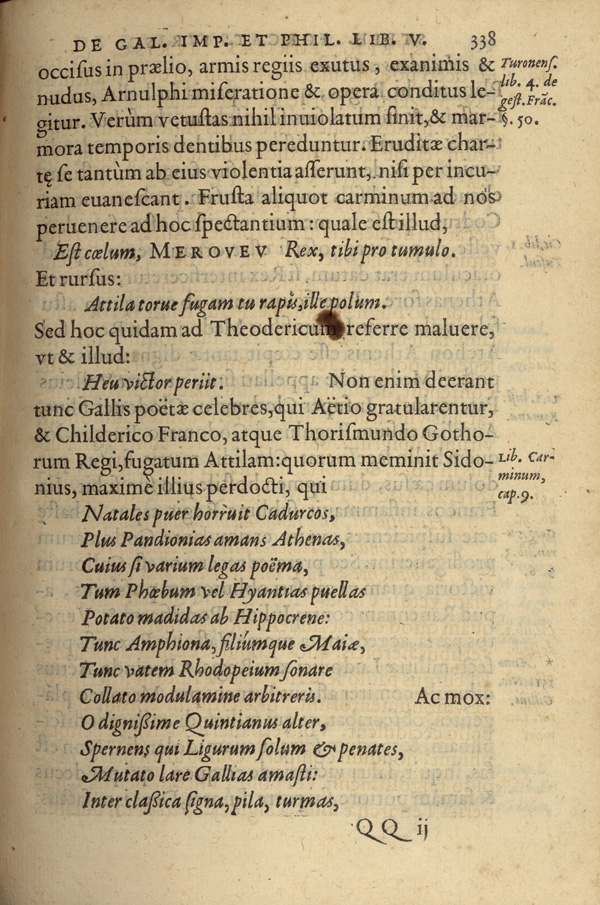 DE GAL. IMP. ET PHIL. LIB. V. 338
occisus in prælio, armis regiis exutus, exanimis &
nudus, Arnulphi miseratione & opera conditus le-
gitur. Verùm vetustas nihil inuiolatum sinit, & mar-
mora temporis dentibus pereduntur. Eruditæ char-
tę se tantùm ab eius violentia asserunt, nisi per incu-
riam euanescant. Frusta aliquot carminum ad nos
peruenere ad hoc spectantium: quale est illud,
Est cœlum, MEROVEV Rex, tibi pro tumulo.
Et rursus:
Attila torue fugam tu rapis, ille polum.
Sed hoc quidam ad Theodericum referre maluere,
vt & illud:
Heu victor periit. Non enim deerant
tunc Gallis poëtæ celebres, qui Aëtio gratularentur,
& Childerico Franco, atque Thorismundo Gotho-
rum Regi, fugatum Attilam: quorum meminit Sido-
nius, maximè illius perdocti, qui
Natales puer horruit Cadurcos,
Plus Pandionias amans Athenas,
Cuius si varium legas poëma,
Tum Phœbum vel Hyantias puellas
Potato madidas ab Hippocrene:
Tunc Amphiona, filiúmque Maiæ,
Tunc vatem Rhodopeium sonare
Collato modulamine arbitreris. Ac mox:
O dignißime Quintianus alter,
Spernens qui Ligurum solum & penates,
Mutato lare Gallias amasti:
Inter claßica signa, pila, turmas,
QQ ij
Turonens.
lib. 4. de
gest. Frãc.
§. 50.
Lib. Car-
minum,
cap. 9.